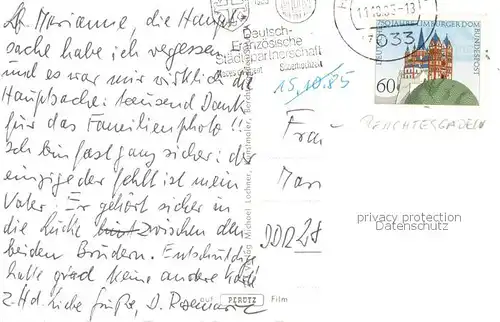 Lb. Marianne, die Haupt-
sache habe ich vergessen
und es war mir wirklich die
Hauptsache: tausend Dank
für das Familienphoto!!
Ich bin fast ganz sicher: der
einzige der fehlt ist mein
Vater: Er gehört sicher in
die Lücke zwischen den
beiden Brüdern. Entschuldige
hatte grad keine andere Karte
z. Hd. Liebe Grüße, D. Rosemarie
Deutsch-
Französische
Städtepartnerschaft
7633
750 JAHRE LIMBURGER DOM
DEUTSCHE BUNDESPOST
60
15.10.85
Frau
BERCHTESGADEN
Mari
DDR 28
Verlag Michael Lochner,
auf PERUTZ Film
privacy protection
Datenschutz